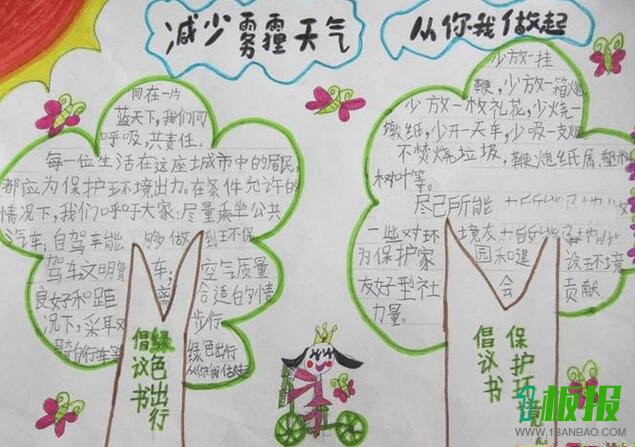 减少雾霾天气
从你我做起
同在一片
蓝天下,我们同
呼吸,共责任。
每一位生活在这座城市中的居民,
都应为保护环境出力。在条件允许的
情况下,我们呼吁大家:尽量乘坐公共
汽车;自驾车能够做到环保
驾车文明驾车;空气质量
良好和距离合适的情
况下,采取步行
骑自行车等
绿色出行
从你我做起
绿色出行
倡议书
少放一挂
鞭,少放一箱炮
少放一枚礼花,少烧一
墩纸,少开一天车,少吸一支烟
不焚烧垃圾,鞭炮纸屑,塑料
树叶等。
尽己所能
一些对环境友
为保护家园和建设环境
友好型社会贡献
力量。
保护环境
倡议书
板报
WWW.1BANBAO.COM